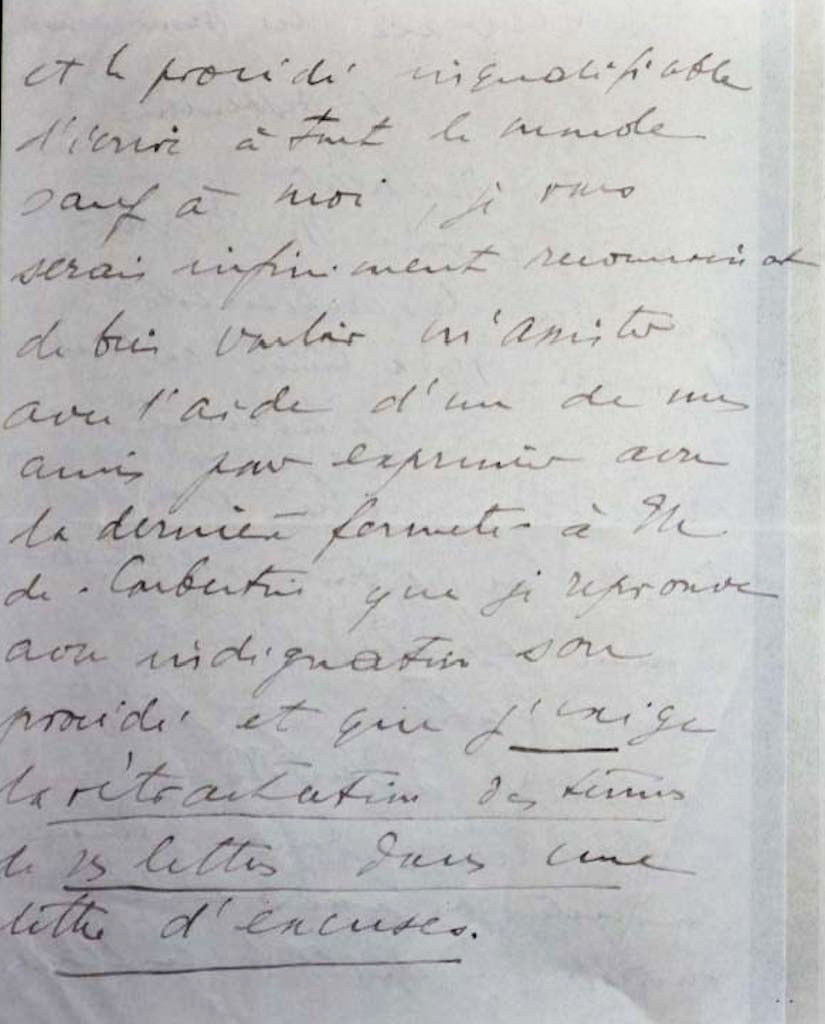 et le procédé inqualifiable
d'écrire à tout le monde
sauf à moi, je vous
serais infiniment reconnaissant
de bien vouloir m'assister
avec l'aide d'un de mes
amis pour exprimer avec
la dernière fermeté à M.
de que je réprouve
avec indignation son
procédé et que j'exige
la rétractation des termes
de ses lettres dans une
lettre d'excuses.